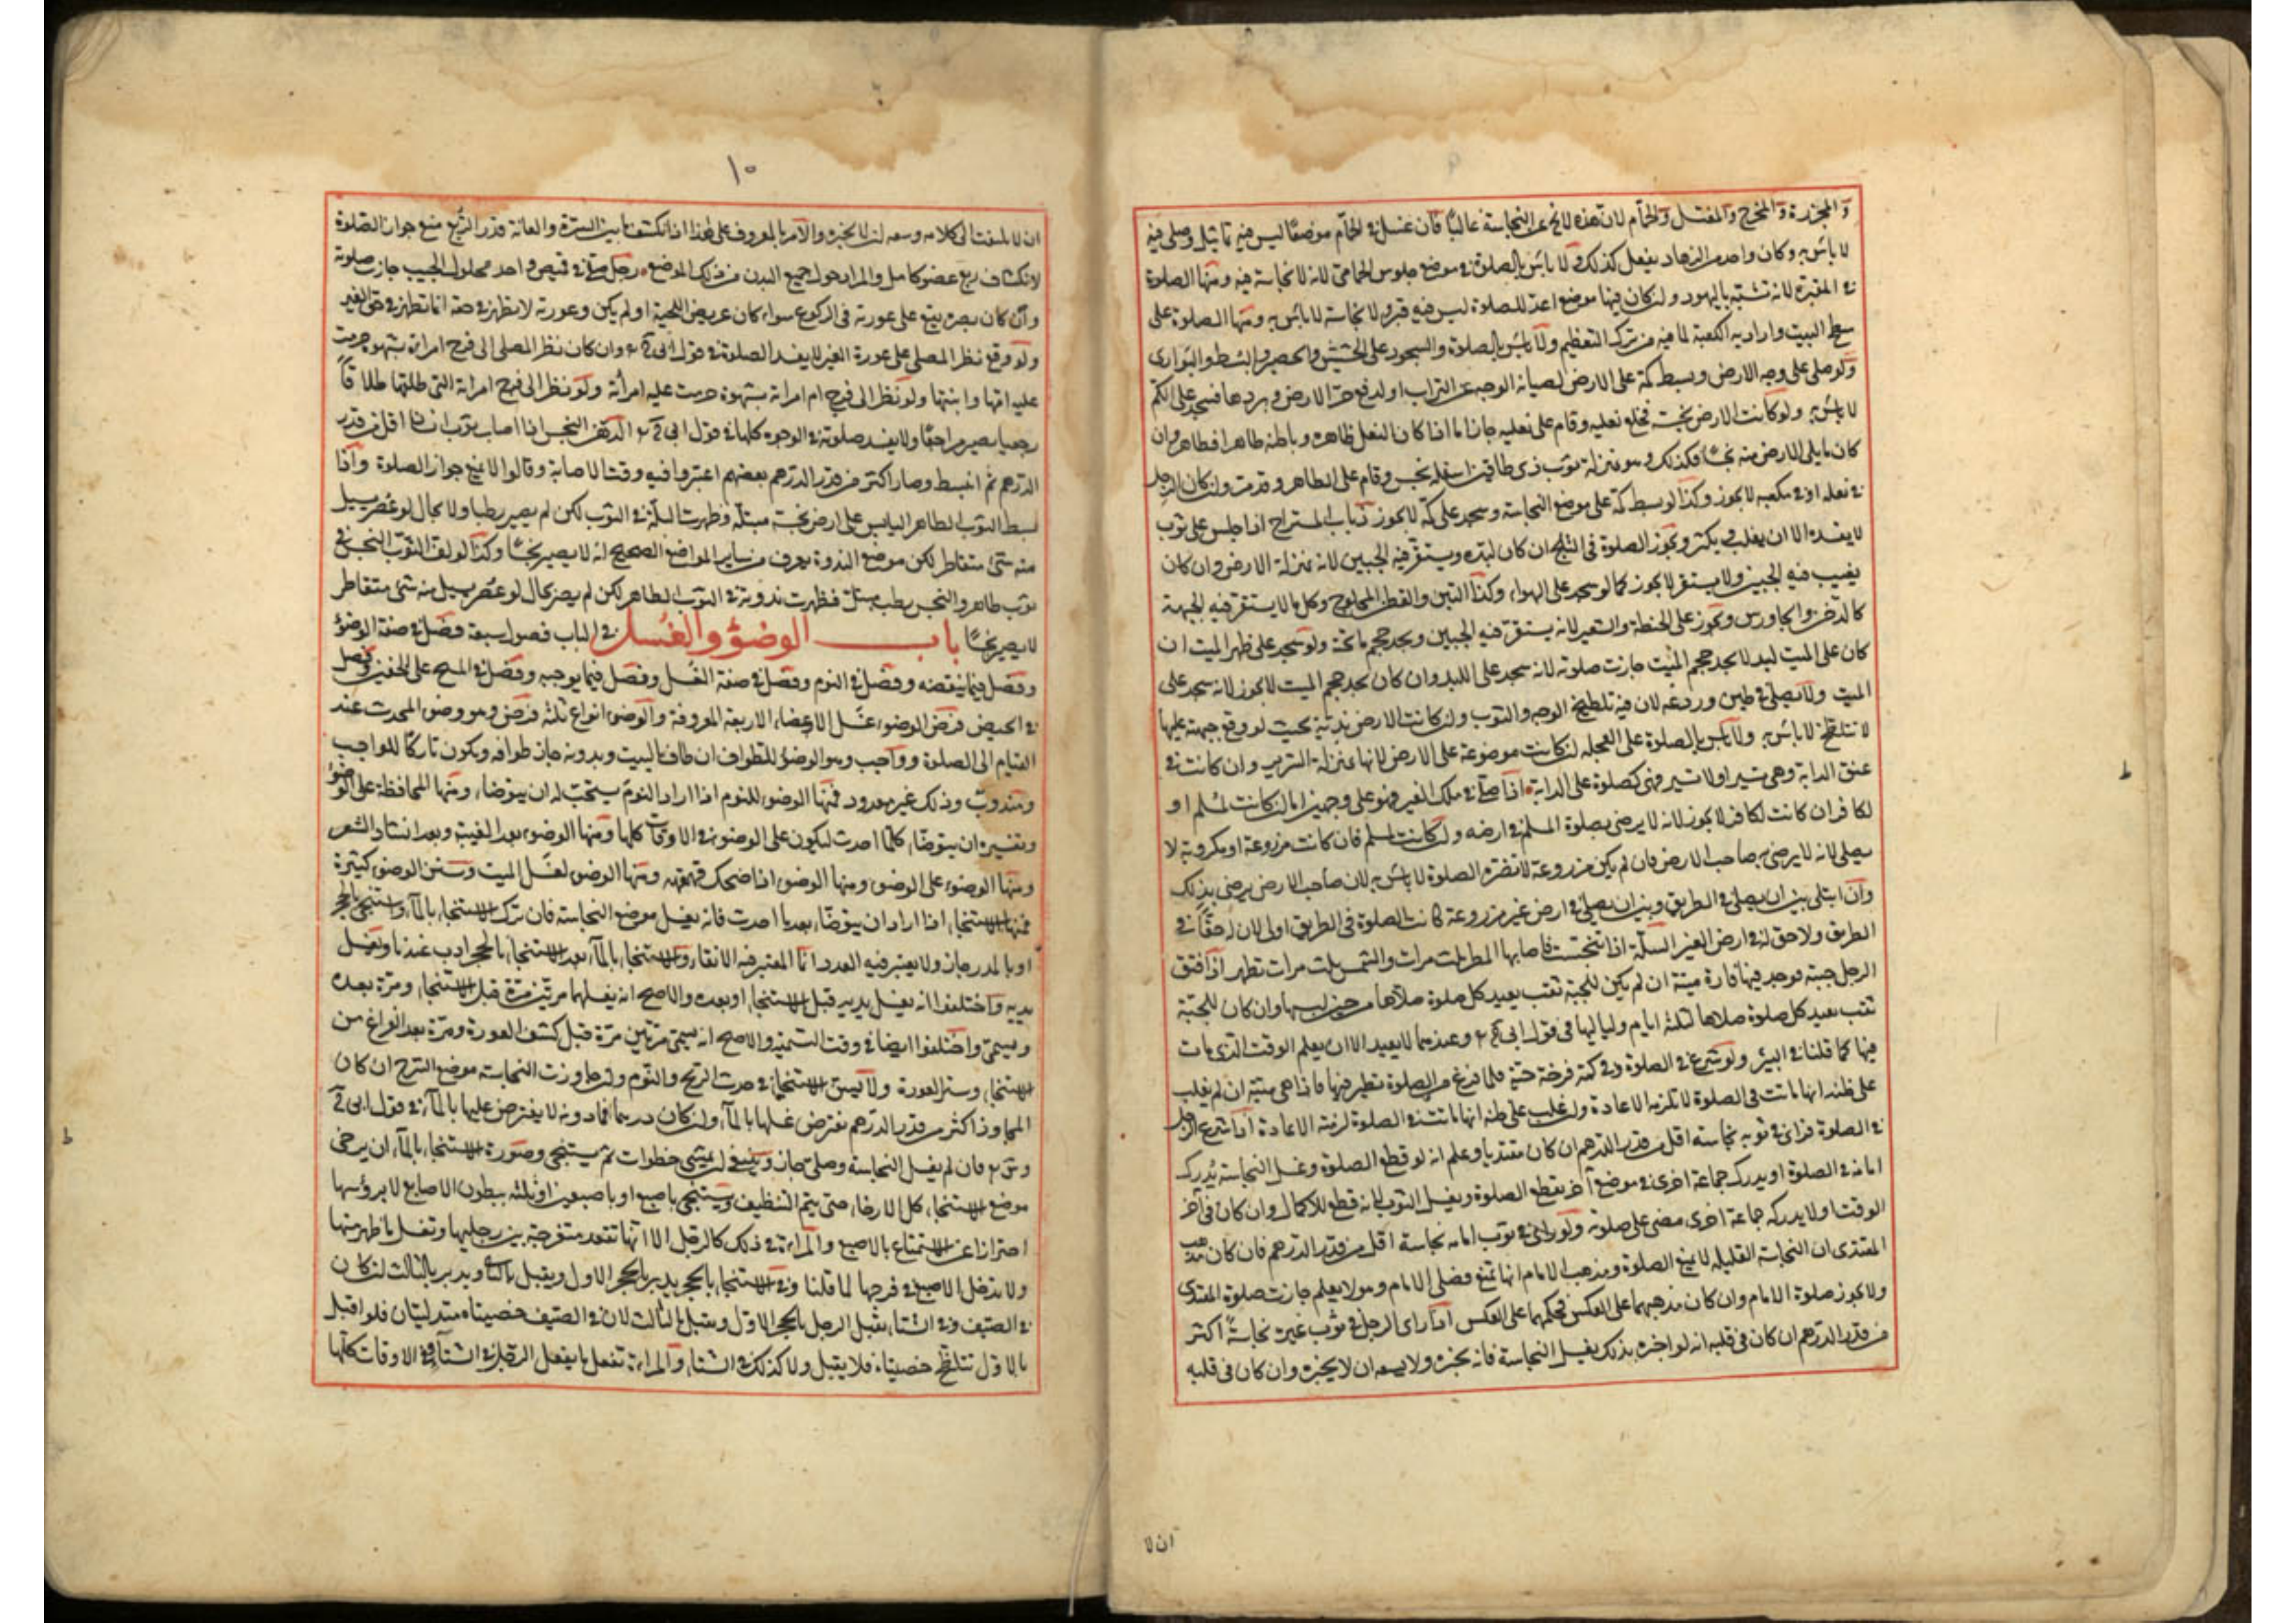 والمجزرة والمخرج والمغتسل والحمام لان هذه لا تخ عن النجاسة غالبا فان غسل في الحمام موضعا ليس فيه تماثيل وصلى فيه
لا بأس به وكان واحد من الزهاد يفعل كذلك ولا بأس بالصلوة في موضع جلوس الحمامي لانه لا نجاسة فيه ومنها الصلوة
في المقبرة لانه تشبه باليهود ولن كان فيها موضع اعد للصلوة ليس فيه قبر ولا نجاسة لا بأس به ومنها الصلوة على
سطح البيت واراد به الكعبة لما فيه من ترك التعظيم ولا بأس بالصلوة والسجود على الحشيش والحصير والبسط والبوارى
ولو صلى على وجه الارض وبسط كمه على الارض لصيانة الوجه عن التراب او لدفع حر الارض وبردها فسجد على الكم
لا بأس به ولو كانت الارض نجسة فخلع نعليه وقام على نعليه جاز اما اذا كان النعل ظاهره وباطنه طاهرا فظاهر وان
كان ما يلى الارض منه نجسا فكذلك وهو بمنزلة ثوب ذى طاقين اسفله نجس وقام على الطاهر وقدمت ولن كان الرجل
في نعله او في مكعبه لا يجوز وكذا لو بسط كمه على موضع النجاسة وسجد على كمه لا يجوز ذباب المستراح اذا جلس على ثوب
لا يفسده الا ان يغلب ويكثر ويجوز الصلوة في الثلج ان كان لبده ويستقر فيه الجبين لانه بمنزلة الارض وان كان
يغيب فيه الجبين ولا يستقر لا يجوز كما لو سجد على الهواء وكذا التبن والقطن المحلوج وكل ما لا يستقر فيه الجبهة
كالدخن والجاورس ويجوز على الحنطة والشعير لانه يستقر فيه الجبين ويجد حجم ما تحته ولو سجد على ظهر الميت ان
كان على الميت لبد لا يجد حجم الميت جازت صلوته لانه سجد على اللبد وان كان يجد حجم الميت لا يجوز لانه سجد على
الميت ولا يصلى في طين وردغه لان فيه تلطيخ الوجه والثوب ولن كانت الارض ندية بحيث لو وقع جبهته عليها
لا تتلطخ لا بأس به ولا بأس بالصلوة على العجله لن كانت موضوعة على الارض لانها بمنزلة السرير وان كانت في
عنق الدابة وهى تسير او لا تسير فهى كصلوة على الدابة اذا صلى في ملك الغير فهو على وجهين اما لن كانت لمسلم او
لكافر ان كانت لكافر لا يجوز لانه لا يرضى بصلوة المسلم في ارضه ولن كانت لمسلم فان كانت مزروعة او مكروبة لا
يصلى لانه لا يرضى به صاحب الارض فان لم يكن مزروعة لا تضره الصلوة لا بأس به لان صاحب الارض يرضى بذلك
وان ابتلى بين ان يصلى في الطريق وبين ان يصلى في ارض غير مزروعة كانت الصلوة في الطريق اولى لان له حقا في
الطريق ولا حق له في ارض الغير السلة اذا تنجست فاصابها المطر ثلث مرات والشمس ثلث مرات تطهر اذا فتق
الرجل جبته فوجد فيها فارة ميتة ان لم يكن للجبة ثقب يعيد كل صلوة صلاها من حين لبسها وان كان للجبة
ثقب يعيد كل صلوة صلاها لثلثة ايام ولياليها في قول ابى ح و وعندهما لا يعيد الا ان يعلم الوقت الذى مات
فيها كما قلنا في البير ولو شرع في الصلوة وفي كمه فرخة حية فلما فرغ من الصلوة نظر فيها فاذا هى ميتة ان لم يغلب
على ظنه انها ماتت في الصلوة لا تلزمه الاعادة ولن غلب على ظنه انها ماتت في الصلوة لزمته الاعادة اذا شرع الرجل
في الصلوة فرأى في ثوبه نجاسة اقل من قدر الدرهم ان كان مقتديا وعلم انه لو قطع الصلوة وغسل النجاسة يدرك
امامه في الصلوة او يدرك جماعة اخرى في موضع آخر يقطع الصلوة ويغسل الثوب لانه قطع للاكمال وان كان في آخر
الوقت او لا يدرك جماعة اخرى مضى على صلوته ولو راى في ثوب امامه نجاسة اقل من قدر الدرهم فان كان مذهب
المقتدى ان النجاسة القليله لا يمنع الصلوة ومذهب الامام انها تمنع فصلى الامام وهو لا يعلم جازت صلوة المقتدى
ولا يجوز صلوة الامام وان كان مذهبهما على العكس فحكمهما على العكس اذا راى الرجل في ثوب غيره نجاسة اكثر
من قدر الدرهم ان كان في قلبه انه لو اخبره بذلك يغسل النجاسة فانه يخبره ولا يسعه ان لا يخبره وان كان في قلبه
ان لا
١٠
ان لا يلتفت الى كلامه وسعه لن لا يخبره والامر بالمعروف على هذا اذا انكشف ما بين السرة والعانة قدر الربع منع جواز الصلوة
لانكشاف ربع عضو كامل والمراد حول جميع البدن من ذلك الموضع رجل صلى في قميص واحد محلول الجيب جازت صلوته
وان كان بصره يقع على عورته في الركوع سواء كان عريض اللحية او لم يكن وعورته لا تظهر في حقه انما تظهر في حق الغير
ولو وقع نظر المصلى على عورة الغير لا يفسد الصلوة في قول ابى ح و وان كان نظر المصلى الى فرج امراة بشهوة حرمت
عليه امها وابنتها ولو نظر الى فرج ام امراته بشهوة حرمت عليه امرأته ولو نظر الى فرج امراته التى طلقها طلاقا
رجعيا يصير مراجعا ولا يفسد صلوته في الوجوه كلها في قول ابى ح و الدهن النجس اذا اصاب ثوب انسان اقل من قدر
الدرهم ثم انبسط وصار اكثر من قدر الدرهم بعضهم اعتبروا فيه وقت الاصابة وقالوا لا يمنع جواز الصلوة واذا
بسط الثوب الطاهر اليابس على ارض نجسة مبتلة وظهرت البلة في الثوب لكن لم يصير رطبا ولا بحال لو عصر يسيل
منه شئ متقاطر لكن موضع الندوة يعرف من ساير المواضع الصحيح انه لا يصير نجسا وكذا لو لف الثوب النجس في
ثوب طاهر والنجس رطب مبتل فظهرت ندوته في الثوب الطاهر لكن لم يصر بحال لو عصر يسيل منه شئ متقاطر
لا يصير نجسا باب الوضوء والغسل في الباب فصول سبعة فصل في صفة الوضوء
وفصل فيما ينقضه وفصل في النوم وفصل في صفة الغسل وفصل فيما يوجبه وفصل في المسح على الخفين وفصل
في الحيض فرض الوضوء غسل الاعضاء الاربعة المعروفة والوضوء انواع ثلثة فرض وهو وضوء المحدث عند
القيام الى الصلوة وواجب وهو الوضوء للطواف ان طاف بالبيت وبدونه جاز طوافه ويكون تاركا للواجب
ومندوب وذلك غير معدود فمنها الوضوء للنوم اذا اراد النوم يستحب له ان يتوضا ومنها المحافظة على الوضوء
وتفسيره ان يتوضا كلما احدث ليكون على الوضوء في الاوقات كلها ومنها الوضوء بعد الغيبة وبعد انشاد الشعر
ومنها الوضوء على الوضوء ومنها الوضوء اذا ضحك قهقهه ومنها الوضوء لغسل الميت وسنن الوضوء كثيرة
فمنها الاستنجاء اذا اراد ان يتوضا بعد ما احدث فانه يغسل موضع النجاسة فان ترك الاستنجاء بالماء واستنجى بالحجر
او بالمدر جاز ولا يعتبر فيه العدد انما المعتبر فيه الانقاء والاستنجاء بالماء بعد الاستنجاء بالحجر ادب عندنا ويغسل
يديه واختلفوا انه يغسل يديه قبل الاستنجاء او بعده والاصح انه يغسلهما مرتين مرة قبل الاستنجاء ومرة بعده
ويسمى واختلفوا ايضا في وقت التسمية والاصح انه يسمى مرتين مرة قبل كشف العورة ومرة بعد الفراغ من
الاستنجاء وستر العورة ولا يسن الاستنجاء في حدث الريح والنوم ولو جاوزت النجاسة موضع الشرج ان كان
المجاوز اكثر من قدر الدرهم يفترض غسلها بالماء ولن كان درهما فما دونه لا يفترض عليها بالماء في قول ابى ح
وس و فان لم يغسل النجاسة وصلى جاز وينبغى لن يمشى خطوات ثم يستنجى وصورة الاستنجاء بالماء ان يرخى
موضع الاستنجاء كل الارخاء حتى يتم التنظيف ويستنجى باصبع او باصبعين او بثلثه ببطون الاصابع لا برؤسها
احترازا عن الاستمتاع بالاصبع والمراءة في ذلك كالرجل الا انها تقعد متفرجة بين رجليها وتغسل ما ظهر منها
ولا تدخل الاصبع في فرجها لما قلنا وفي الاستنجاء بالحجر يدبر بالحجر الاول ويقبل بالثانى ويدبر بالثالث لن كان
في الصيف وفي الشتاء يقبل الرجل بالحجر الاول ويقبل بالثالث لان في الصيف خصيتاه متدليتان فلو اقبل
بالاول تتلطخ خصيتاه فلا يقبل ولا كذلك في الشتاء والمراءة تفعل ما يفعل الرجل في الشتاء في الاوقات كلها